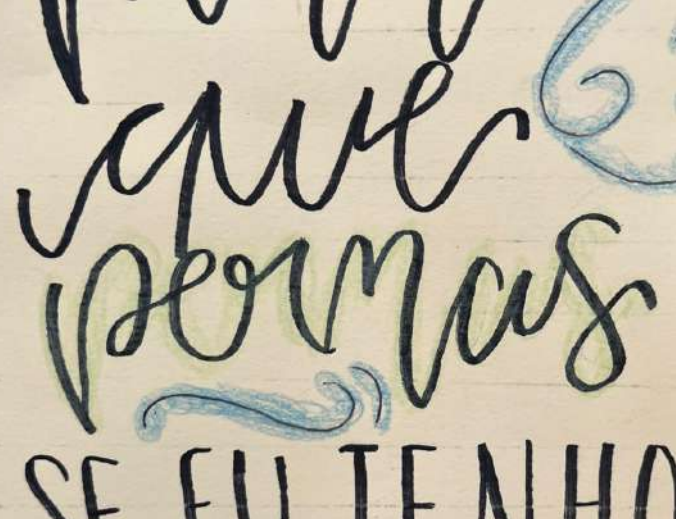 que
pernas
SE EU TENHO